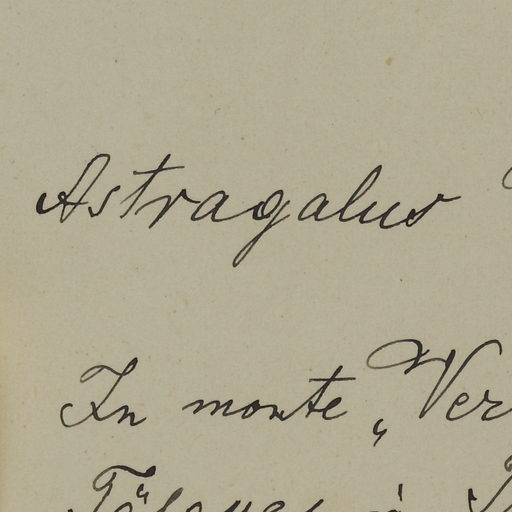 Astragalus
In monte „Ver